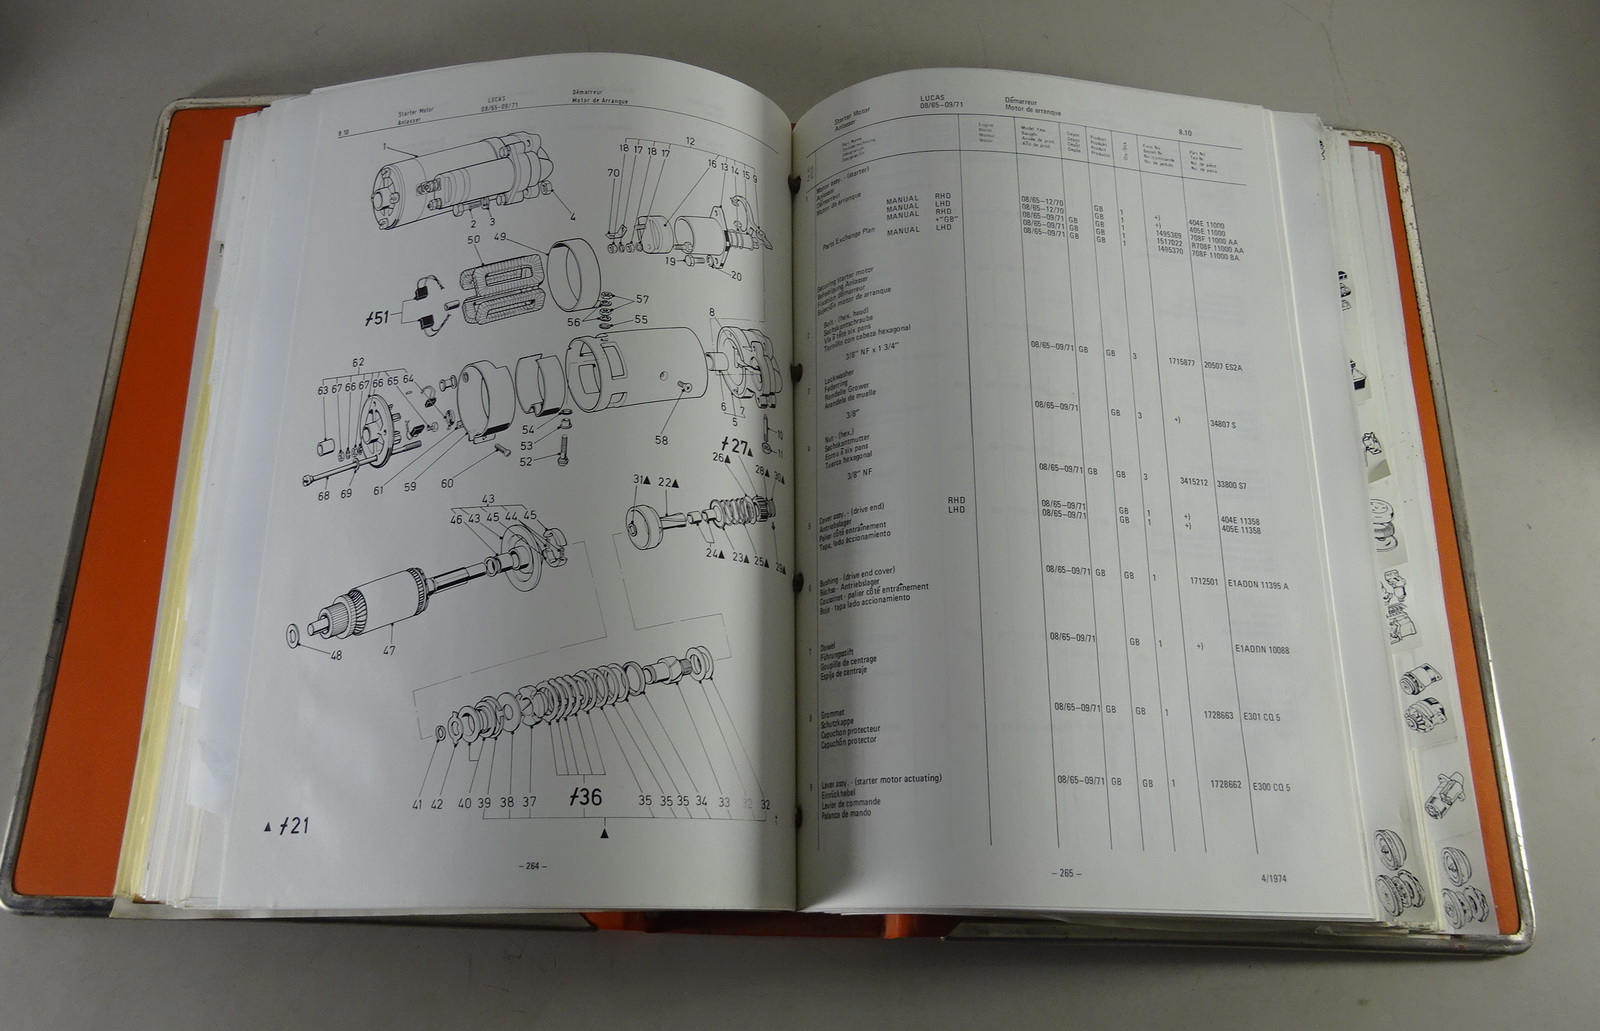 8.10
Starter Motor
Anlasser
LUCAS
08/65-09/71
Démarreur
Motor de Arranque
1
2
3
4
12
18 17 18 17
16 13 14 15 9
70
19
20
50 49
51
57
56
55
8
6 7
5
10
11
62
63 67 66 67 66 65 64
54
53
52
58
68 69 61 59 60
27▲
26▲
28▲ 30▲
31▲ 22▲
24▲ 23▲ 25▲ 29▲
43
46 43 45 44 45
48
47
41 42 40 39 38 37
36
35 35 35 34 33 32 32
▲
▲ 21
– 264 –
Starter Motor
Anlasser
LUCAS
08/65–09/71
Démarreur
Motor de arranque
8.10
Motor assy. - (starter)
Anlasser
Démarreur
Motor de arranque
MANUAL RHD 08/65-12/70 GB 1 +) 404E 11000
MANUAL LHD 08/65-12/70 GB 1 +) 405E 11000
MANUAL RHD 08/65-09/71 GB GB 1 1495369 708F 11000 AA
Parts Exchange Plan +"GB" 08/65-09/71 GB GB 1 1517022 R708F 11000 AA
MANUAL LHD 08/65-09/71 GB GB 1 1495370 708F 11000 BA
Securing starter motor
Befestigung Anlasser
Fixation démarreur
Sujeción motor de arranque
Bolt - (hex. head)
Sechskantschraube
Vis à tête six pans
Tornillo con cabeza hexagonal
3/8" NF x 1 3/4" 08/65-09/71 GB GB 3 1715877 20507 ES2A
Lockwasher
Federring
Rondelle Grower
Arandela de muelle
3/8" 08/65-09/71 GB 3 +) 34807 S
Nut - (hex.)
Sechskantmutter
Ecrou à six pans
Tuerca hexagonal
3/8" NF 08/65-09/71 GB GB 3 3415212 33800 S7
Cover assy. - (drive end) RHD 08/65-09/71 GB 1 +) 404E 11358
Antriebslager LHD 08/65-09/71 GB 1 +) 405E 11358
Palier côté entraînement
Tapa, lado accionamiento
Bushing - (drive end cover) 08/65-09/71 GB GB 1 1712501 E1ADDN 11395 A
Büchse - Antriebslager
Coussinet - palier côté entraînement
Buje - tapa lado accionamiento
Dowel 08/65-09/71 GB 1 +) E1ADDN 10088
Führungsstift
Goupille de centrage
Espija de centraje
Grommet 08/65-09/71 GB GB 1 1728663 E301 CQ 5
Schutzkappe
Capuchon protecteur
Capuchón protector
Lever assy. - (starter motor actuating) 08/65-09/71 GB GB 1 1728662 E300 CQ 5
Einrückhebel
Levier de commande
Palanca de mando
– 265 –
4/1974